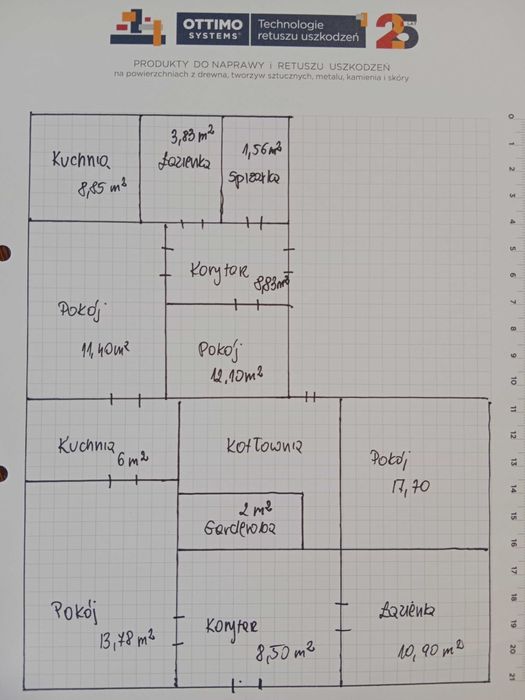 OTTIMO
SYSTEMS®
Technologie
retuszu uszkodzeń
25
LAT
PRODUKTY DO NAPRAWY i RETUSZU USZKODZEŃ
na powierzchniach z drewna, tworzyw sztucznych, metalu, kamienia i skóry
0
1
2
3
4
5
6
7
8
9
10
11
12
13
14
15
16
17
18
19
20
21
Kuchnia
8,85 m²
3,83 m²
Łazienka
1,56 m²
Spiżarka
Korytarz
8,83 m²
Pokój
11,40 m²
Pokój
12,10 m²
Kuchnia
6 m²
Kotłownia
Pokój
17,70
2 m²
Garderoba
Pokój
13,78 m²
Korytarz
8,50 m²
Łazienka
10,90 m²